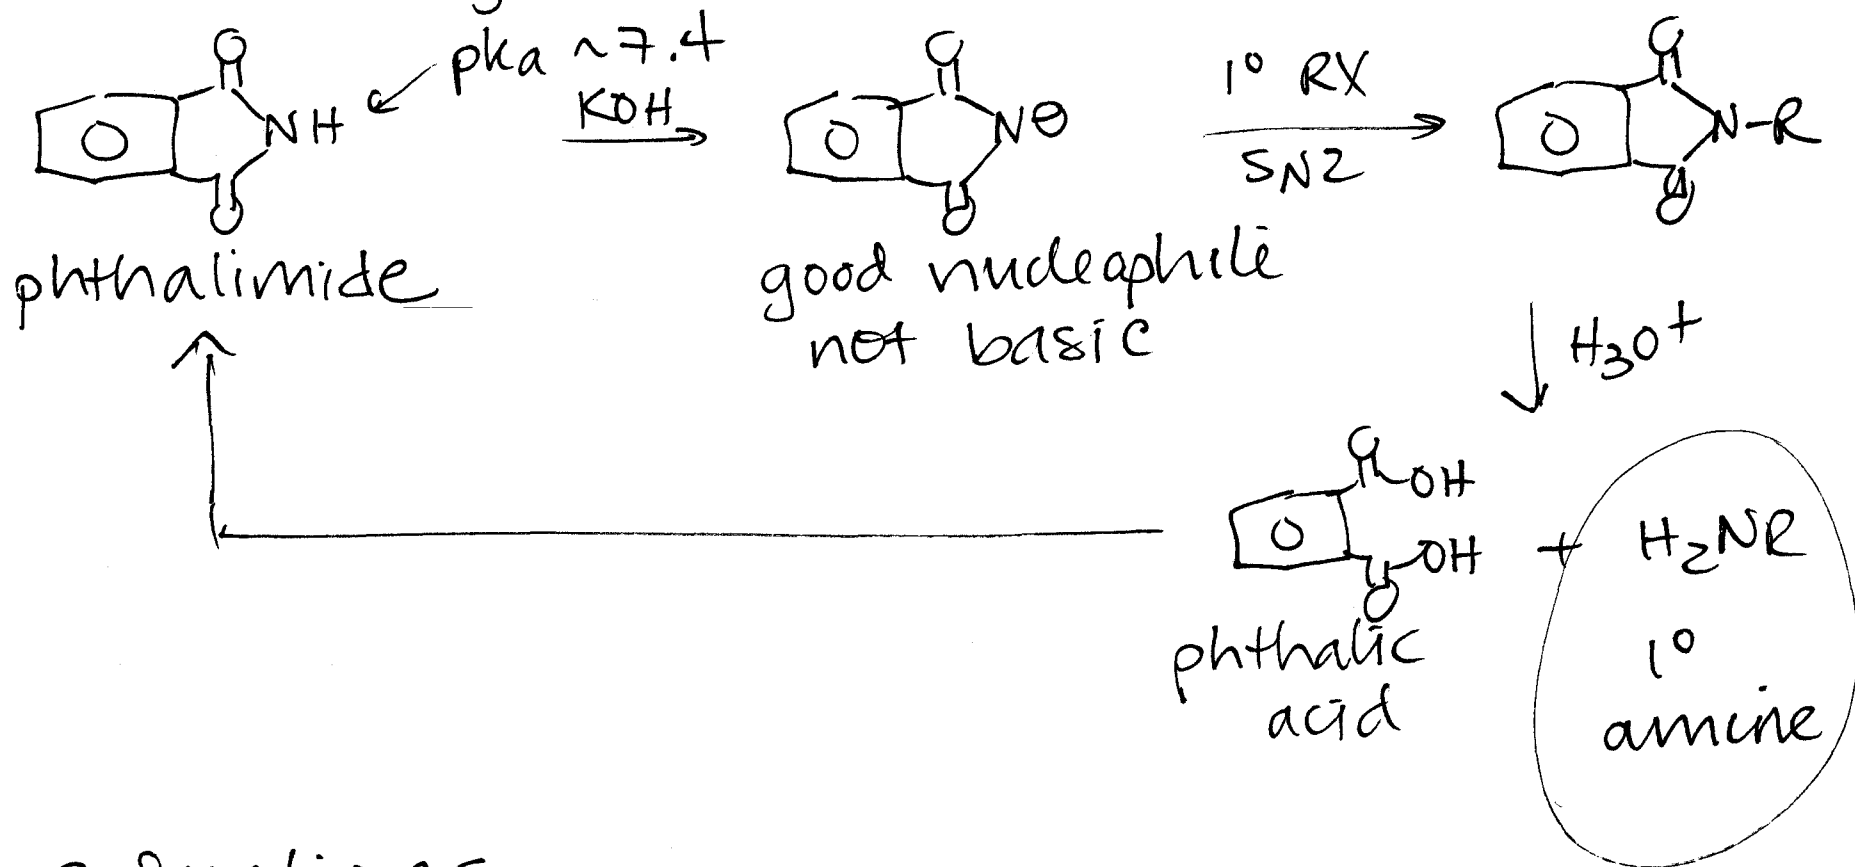 O
pka ~7.4
NH
KOH
O
phthalimide
O
N⊖
O
good nucleophile
not basic
1° RX
SN2
O
N-R
O
H3O+
O
OH
OH
O
phthalic
acid
+
H2NR
1°
amine